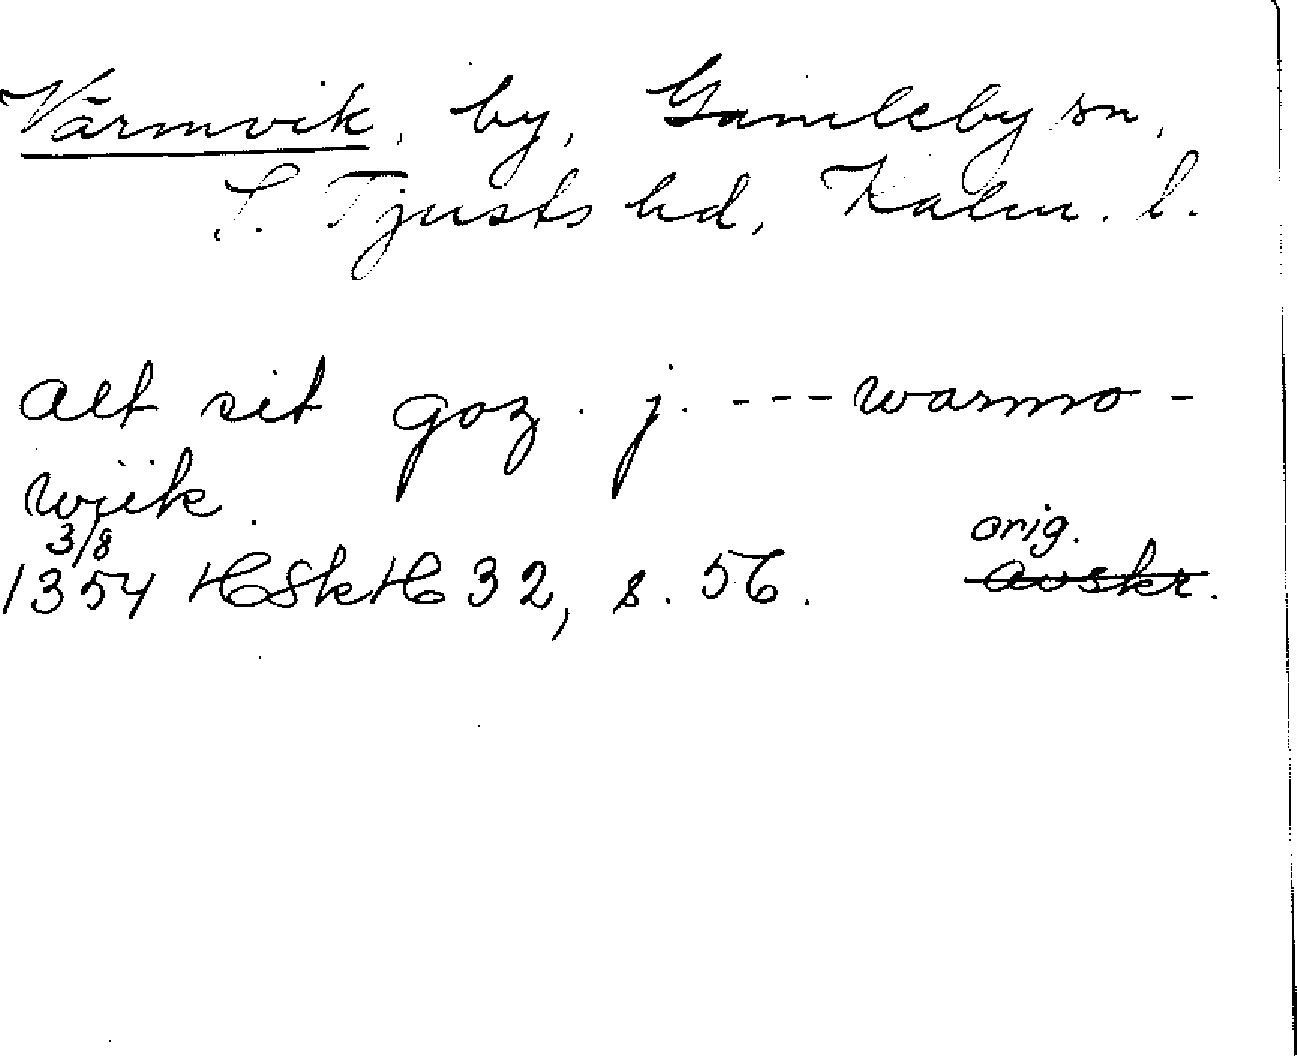 Värmvik, by, Gamleby sn,
S. Tjusts hd, Kalm. l.
alt sit goz. j. --- warmo-
wiik.
3/8 orig.
1354 HSkH 32, s. 56. avskr.